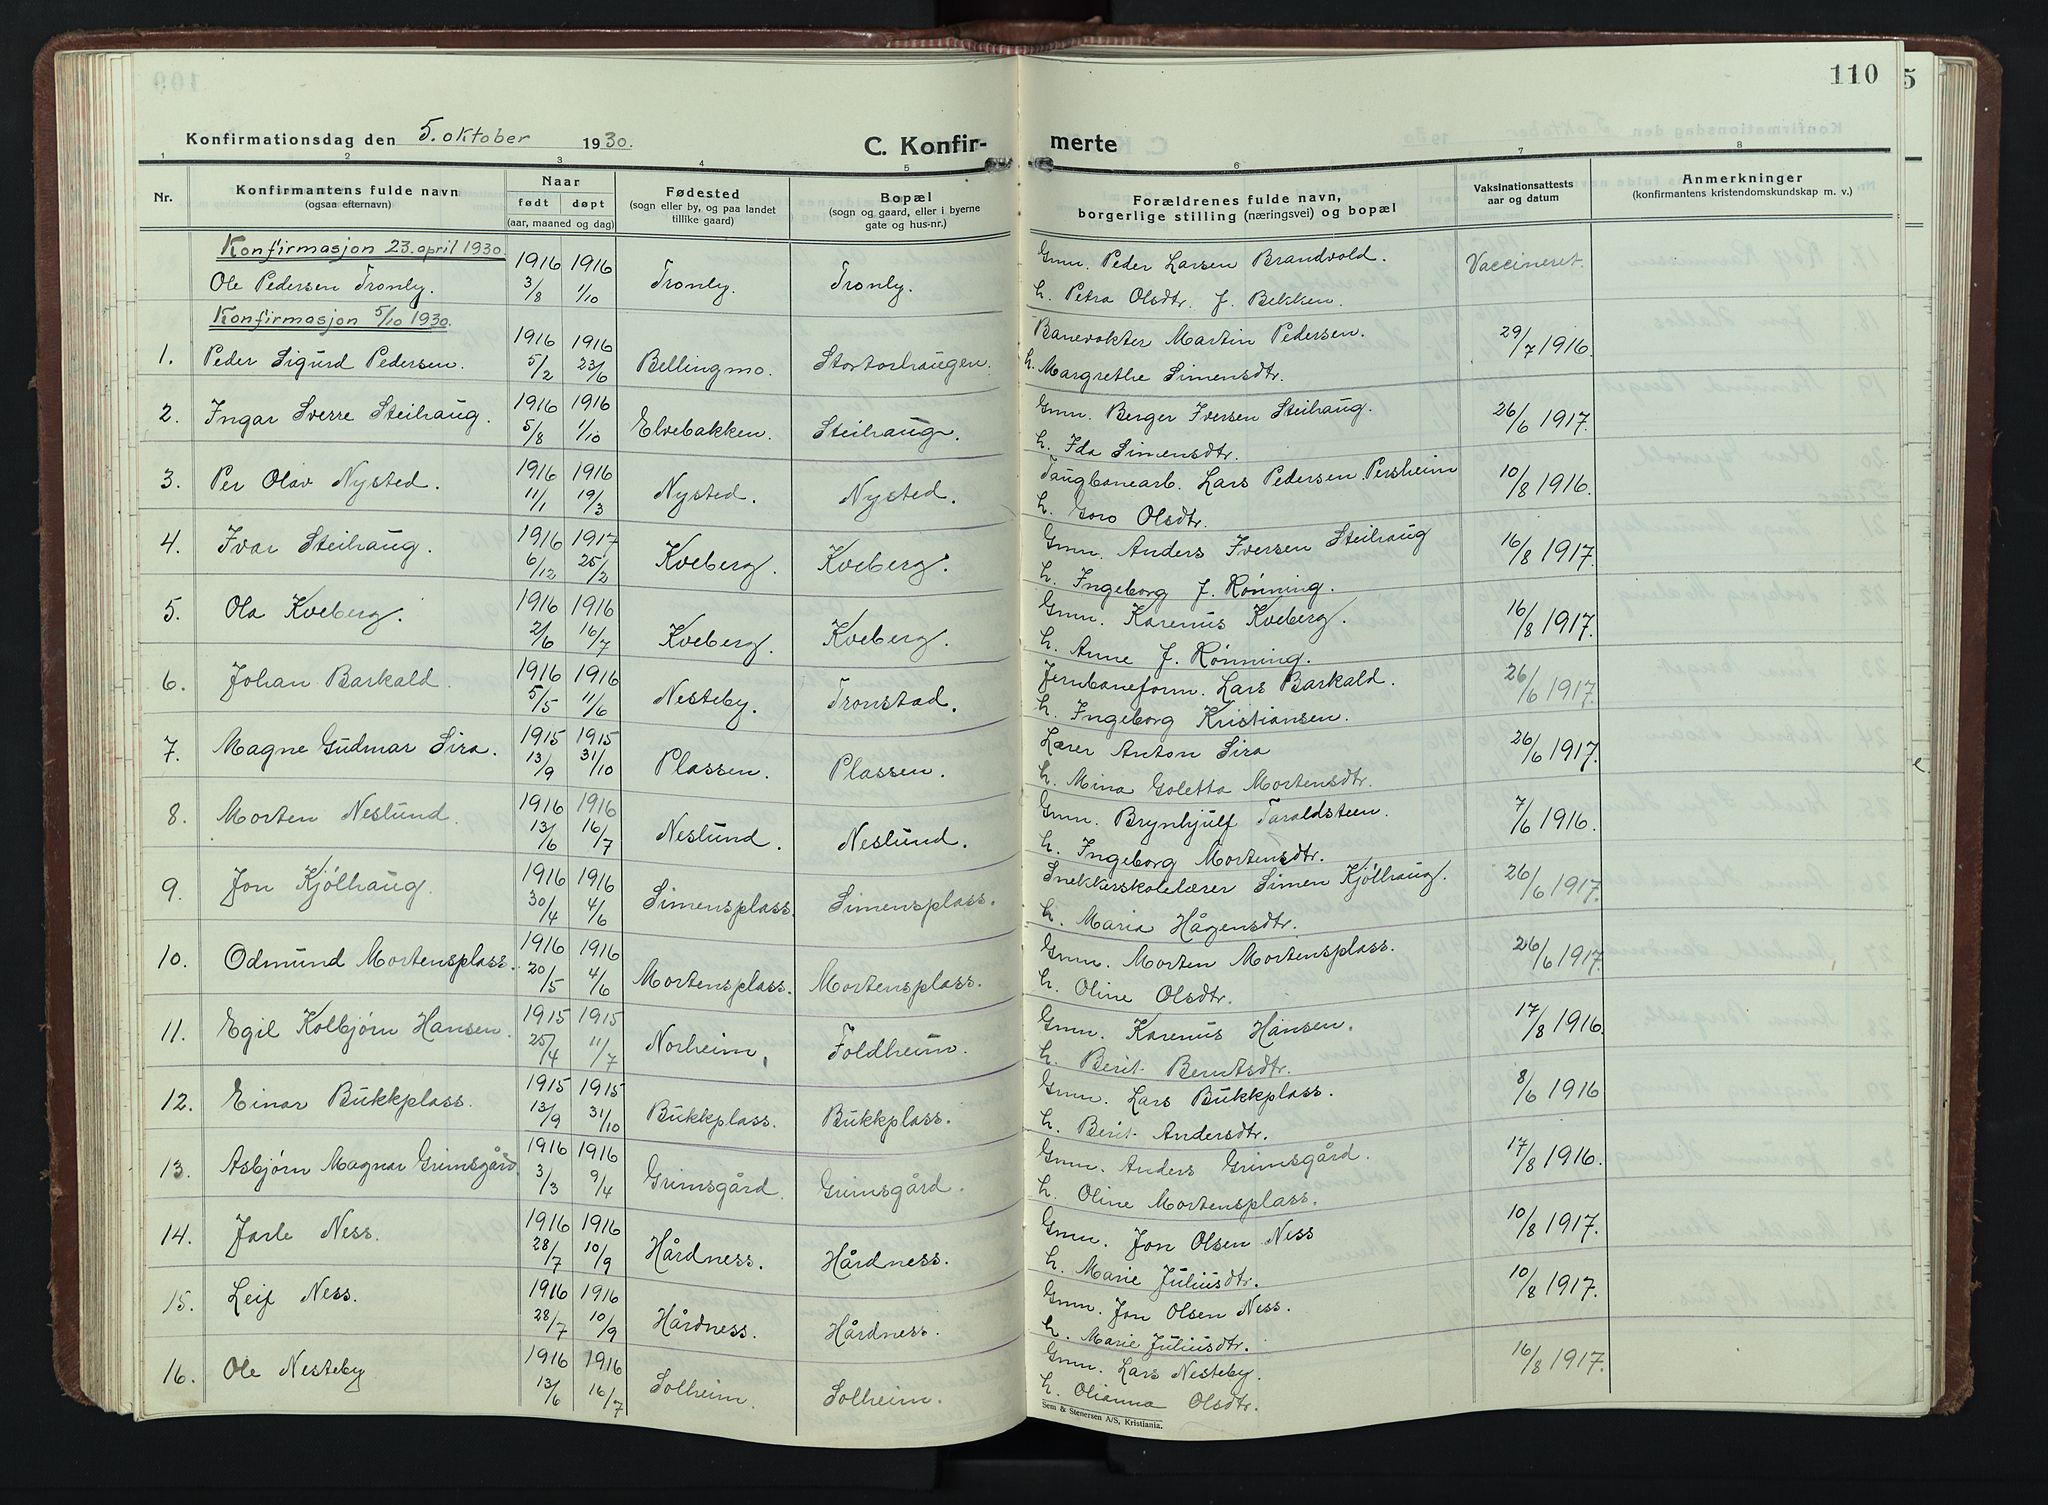 110
Konfirmationsdag den 5. oktober 1930.
C. Konfir-merte
1 2 3 4 5 6 7 8
Nr.
Konfirmantens fulde navn
(ogsaa efternavn)
Naar
født døpt
(aar, maaned og dag)
Fødested
(sogn eller by, og paa landet
tillike gaard)
Bopæl
(sogn og gaard, eller i byerne
gate og hus-nr.)
Forældrenes fulde navn,
borgerlige stilling (næringsvei) og bopæl
Vaksinationsattests
aar og datum
Anmerkninger
(konfirmantens kristendomskundskap m. v.)
Konfirmasjon 23. april 1930.
1916 1916 Gmn. Peder Larsen Brandvold. Vaccineret.
Ole Pedersen Tronly. 3/8 1/10 Tronly. Tronly. h. Petra Olsdtr. f. Bekken.
Konfirmasjon 5/10 1930.
1916 1916 Banevokter Martin Pedersen. 29/7 1916.
1. Peder Sigurd Pedersen. 5/2 23/6 Bellingmo. Stortorhaugen. h. Margrethe Simensdtr.
2. Ingar Sverre Steihaug. 1916 1916 Gmn. Berger Iversen Steihaug. 26/6 1917.
5/8 1/10 Elvebakken. Steihaug. h. Ida Simensdtr.
3. Per Olav Nysted. 1916 1916 Taugbanearb. Lars Pedersen Persheim 10/8 1916.
11/1 19/3 Nysted. Nysted. h. Goro Olsdtr.
4. Ivar Steihaug. 1916 1917 Gmn. Anders Iversen Steihaug 16/8 1917.
6/12 25/2 Kveberg. Kveberg. h. Ingeborg J. Rønning.
5. Ola Kveberg. 1916 1916 Gmn. Karenus Kveberg. 16/8 1917.
2/6 16/7 Kveberg. Kveberg. h. Anne J. Rønning.
6. Johan Barkald. 1916 1916 Jernbaneform. Lars Barkald. 26/6 1917.
5/5 11/6 Nesteby. Tronstad. h. Ingeborg Kristiansen.
7. Magne Gudmar Sira. 1915 1915 Lærer Anton Sira 26/6 1917.
13/9 31/10 Plassen. Plassen. h. Mina Goletta Mortensdtr.
8. Morten Neslund. 1916 1916 Gmn. Brynhjulf Taraldsteen. 7/6 1916.
13/6 16/7 Neslund. Neslund. h. Ingeborg Mortensdtr.
9. Jon Kjølhaug. 1916 1916 Snekkerskolelærer Simen Kjølhaug. 26/6 1917.
30/4 4/6 Simensplass. Simensplass. h. Maria Hågensdtr.
10. Odmund Mortensplass. 1916 1916 Gmn. Morten Mortensplass. 26/6 1917.
20/5 4/6 Mortensplass. Mortensplass. h. Oline Olsdtr.
11. Egil Kolbjørn Hansen. 1915 1915 Gmn. Karenus Hansen. 17/8 1916.
25/4 11/7 Norheim. Foldheim. h. Berit Berntsdtr.
12. Einar Bukkplass. 1915 1915 Gmn. Lars Bukkplass. 8/6 1916
13/9 31/10 Bukkplass. Bukkplass. h. Berit Andersdtr.
13. Asbjørn Magnar Grimsgård 1916 1916 Gmn. Anders Grimsgård. 17/8 1916.
3/3 9/4 Grimsgård. Grimsgård. h. Oline Mortensplass.
14. Jarle Ness. 1916 1916 Gmn. Jon Olsen Ness 10/8 1917.
28/7 10/9 Hårdness. Hårdness. h. Marie Juliusdtr.
15. Leif Ness. 1916 1916 Gmn. Jon Olsen Ness. 10/8 1917.
28/7 10/9 Hårdness. Hårdness. h. Marie Juliusdtr.
16. Ole Nesteby 1916 1916 Gmn. Lars Nesteby. 16/8 1917.
13/6 16/7 Solheim. Solheim. h. Olianna Olsdtr.
Sem & Stenersen A/S, Kristiania.